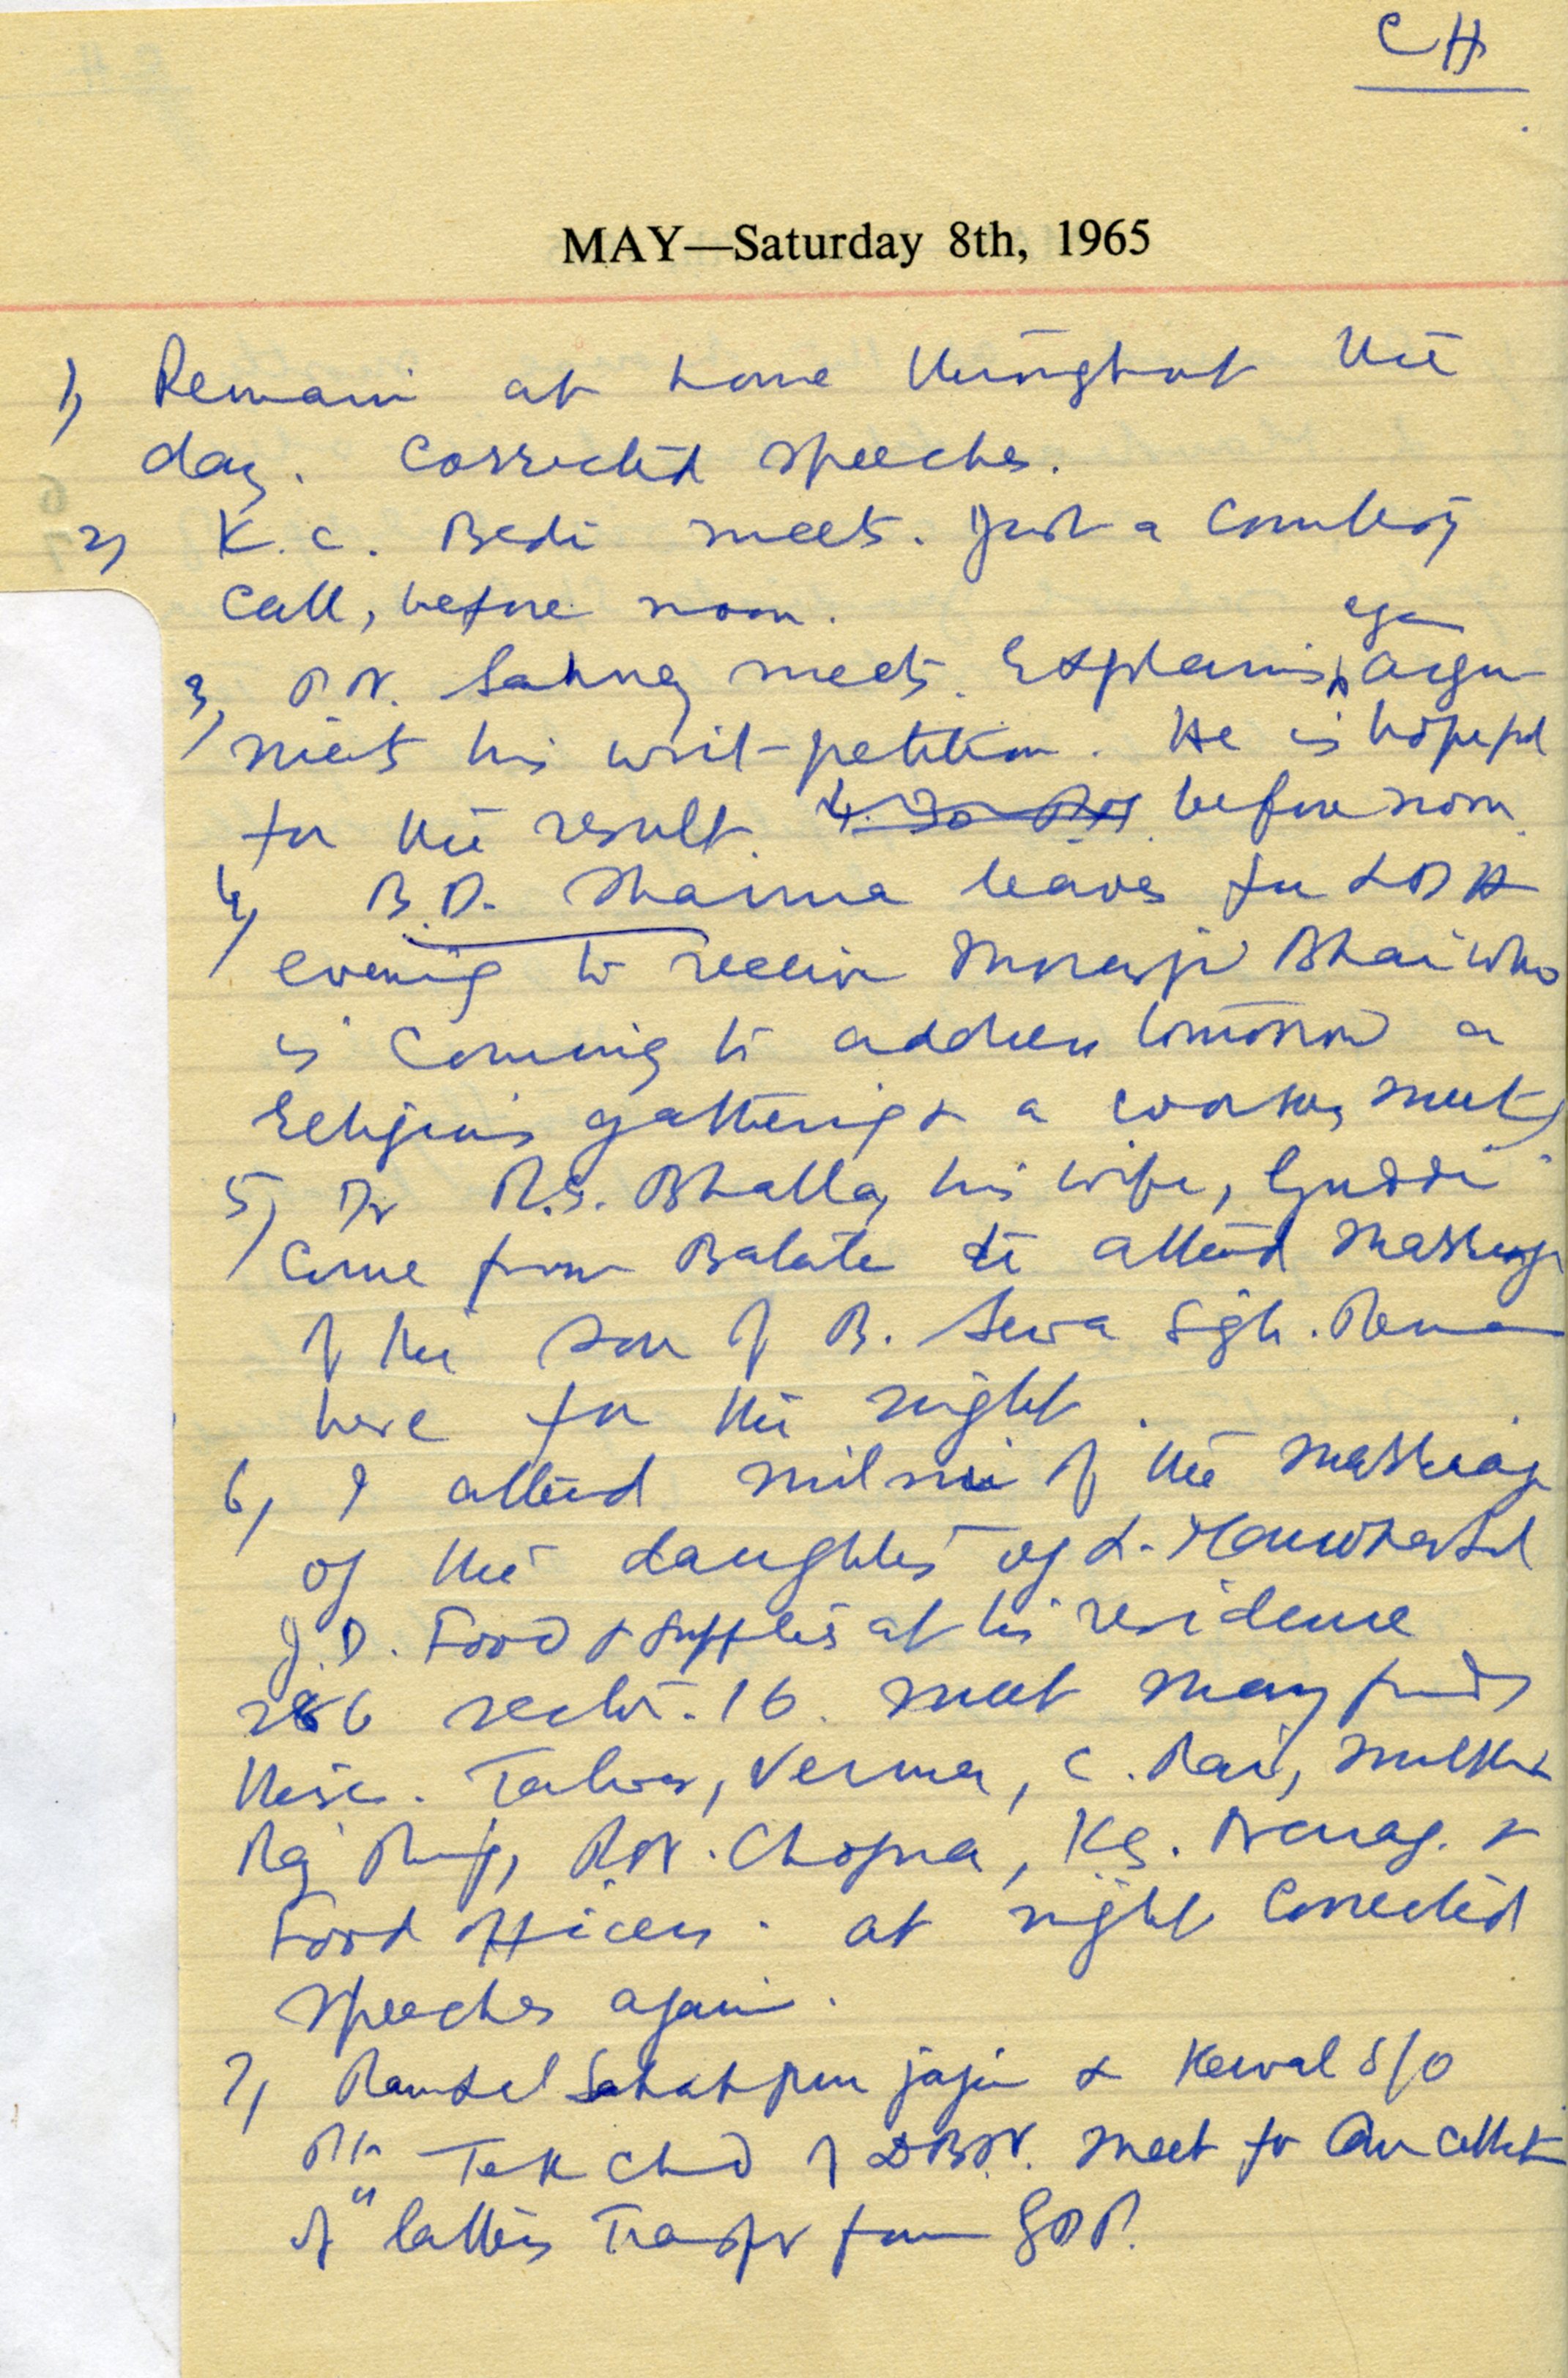 CH
MAY—Saturday 8th, 1965
1) Remain at home throughout the
day. Corrected speeches.
2) K.C. Bedi meets. Just a courtesy
call, before noon.
3) P.N. Sahney meets. Explains argu-
ments his writ-petition. He is hopeful
for the result. 4.30 PM before noon.
4) B.D. Sharma leaves for LDH
evening to receive Morarji Bhai who
is coming to address tomorrow a
religious gathering & a workers meet
5) Dr R.S. Bhalla, his wife, Guddi
come from Batala to attend marriage
of the son of B. Sewa Sigh. Remain
here for the night.
6) I attend milni of the marriage
of the daughter of L.
J.D. Food & Supplies at his residence
286 sector. 16. Meet many friends
there. Talwar, Verma, C. Rai,
Raj R.N. Chopra, &
Food officers. At night corrected
speeches again.
7) Ram Lal & Kewal S/O
Tek Chd of DBN. meet for
of latter's transfer from GDP.